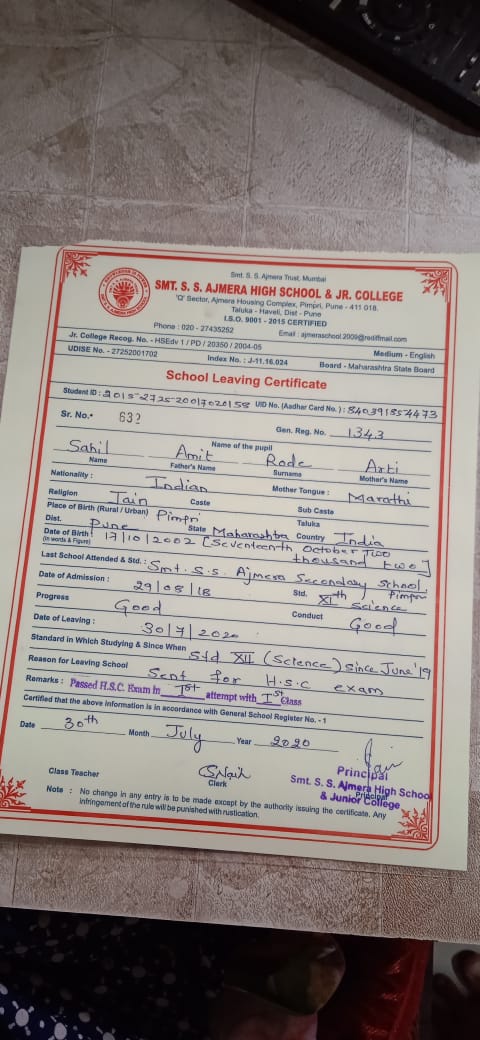 Smt. S. S. Ajmera Trust, Mumbai
SMT. S. S. AJMERA HIGH SCHOOL & JR. COLLEGE
'Q' Sector, Ajmera Housing Complex, Pimpri, Pune - 411 018.
Taluka - Haveli, Dist - Pune
I.S.O. 9001 - 2015 CERTIFIED
Phone : 020 - 27435252 Email : ajmeraschool.2009@rediffmail.com
Jr. College Recog. No. - HSEdv 1 / PD / 20350 / 2004-05 Medium - English
UDISE No. - 27252001702 Index No. : J-11.16.024 Board - Maharashtra State Board
School Leaving Certificate
Student ID : 2015-2725-2001702015 UID No. (Aadhar Card No.) : 840391854473
Sr. No.* 632 Gen. Reg. No. 1343
Name of the pupil
Sahil Amit Rode Arti
Name Father's Name Surname Mother's Name
Nationality : Indian Mother Tongue : Marathi
Religion Jain Caste Sub Caste
Place of Birth (Rural / Urban) Pimpri Taluka
Dist. Pune State Maharashtra Country India
Date of Birth 17/10/2002 [Seventeenth October Two
(In words & Figure) thousand two]
Last School Attended & Std. : Smt. S.S. Ajmera Secondary School,
Pimpri
Date of Admission : 29/08/18 Std. XIth Science
Progress Good Conduct Good
Date of Leaving : 30/7/2020
Standard in Which Studying & Since When Std XII (Science) since June '19
Reason for Leaving School Sent for H.S.C exam
Remarks : Passed H.S.C. Exam in Ist attempt with Ist Class
Certified that the above information is in accordance with General School Register No. - 1
Date 30th Month July Year 2020
Class Teacher SNair Clerk Principal
Principal
Smt. S. S. Ajmera High School
& Junior College
Note : No change in any entry is to be made except by the authority issuing the certificate. Any
infringement of the rule will be punished with rustication.